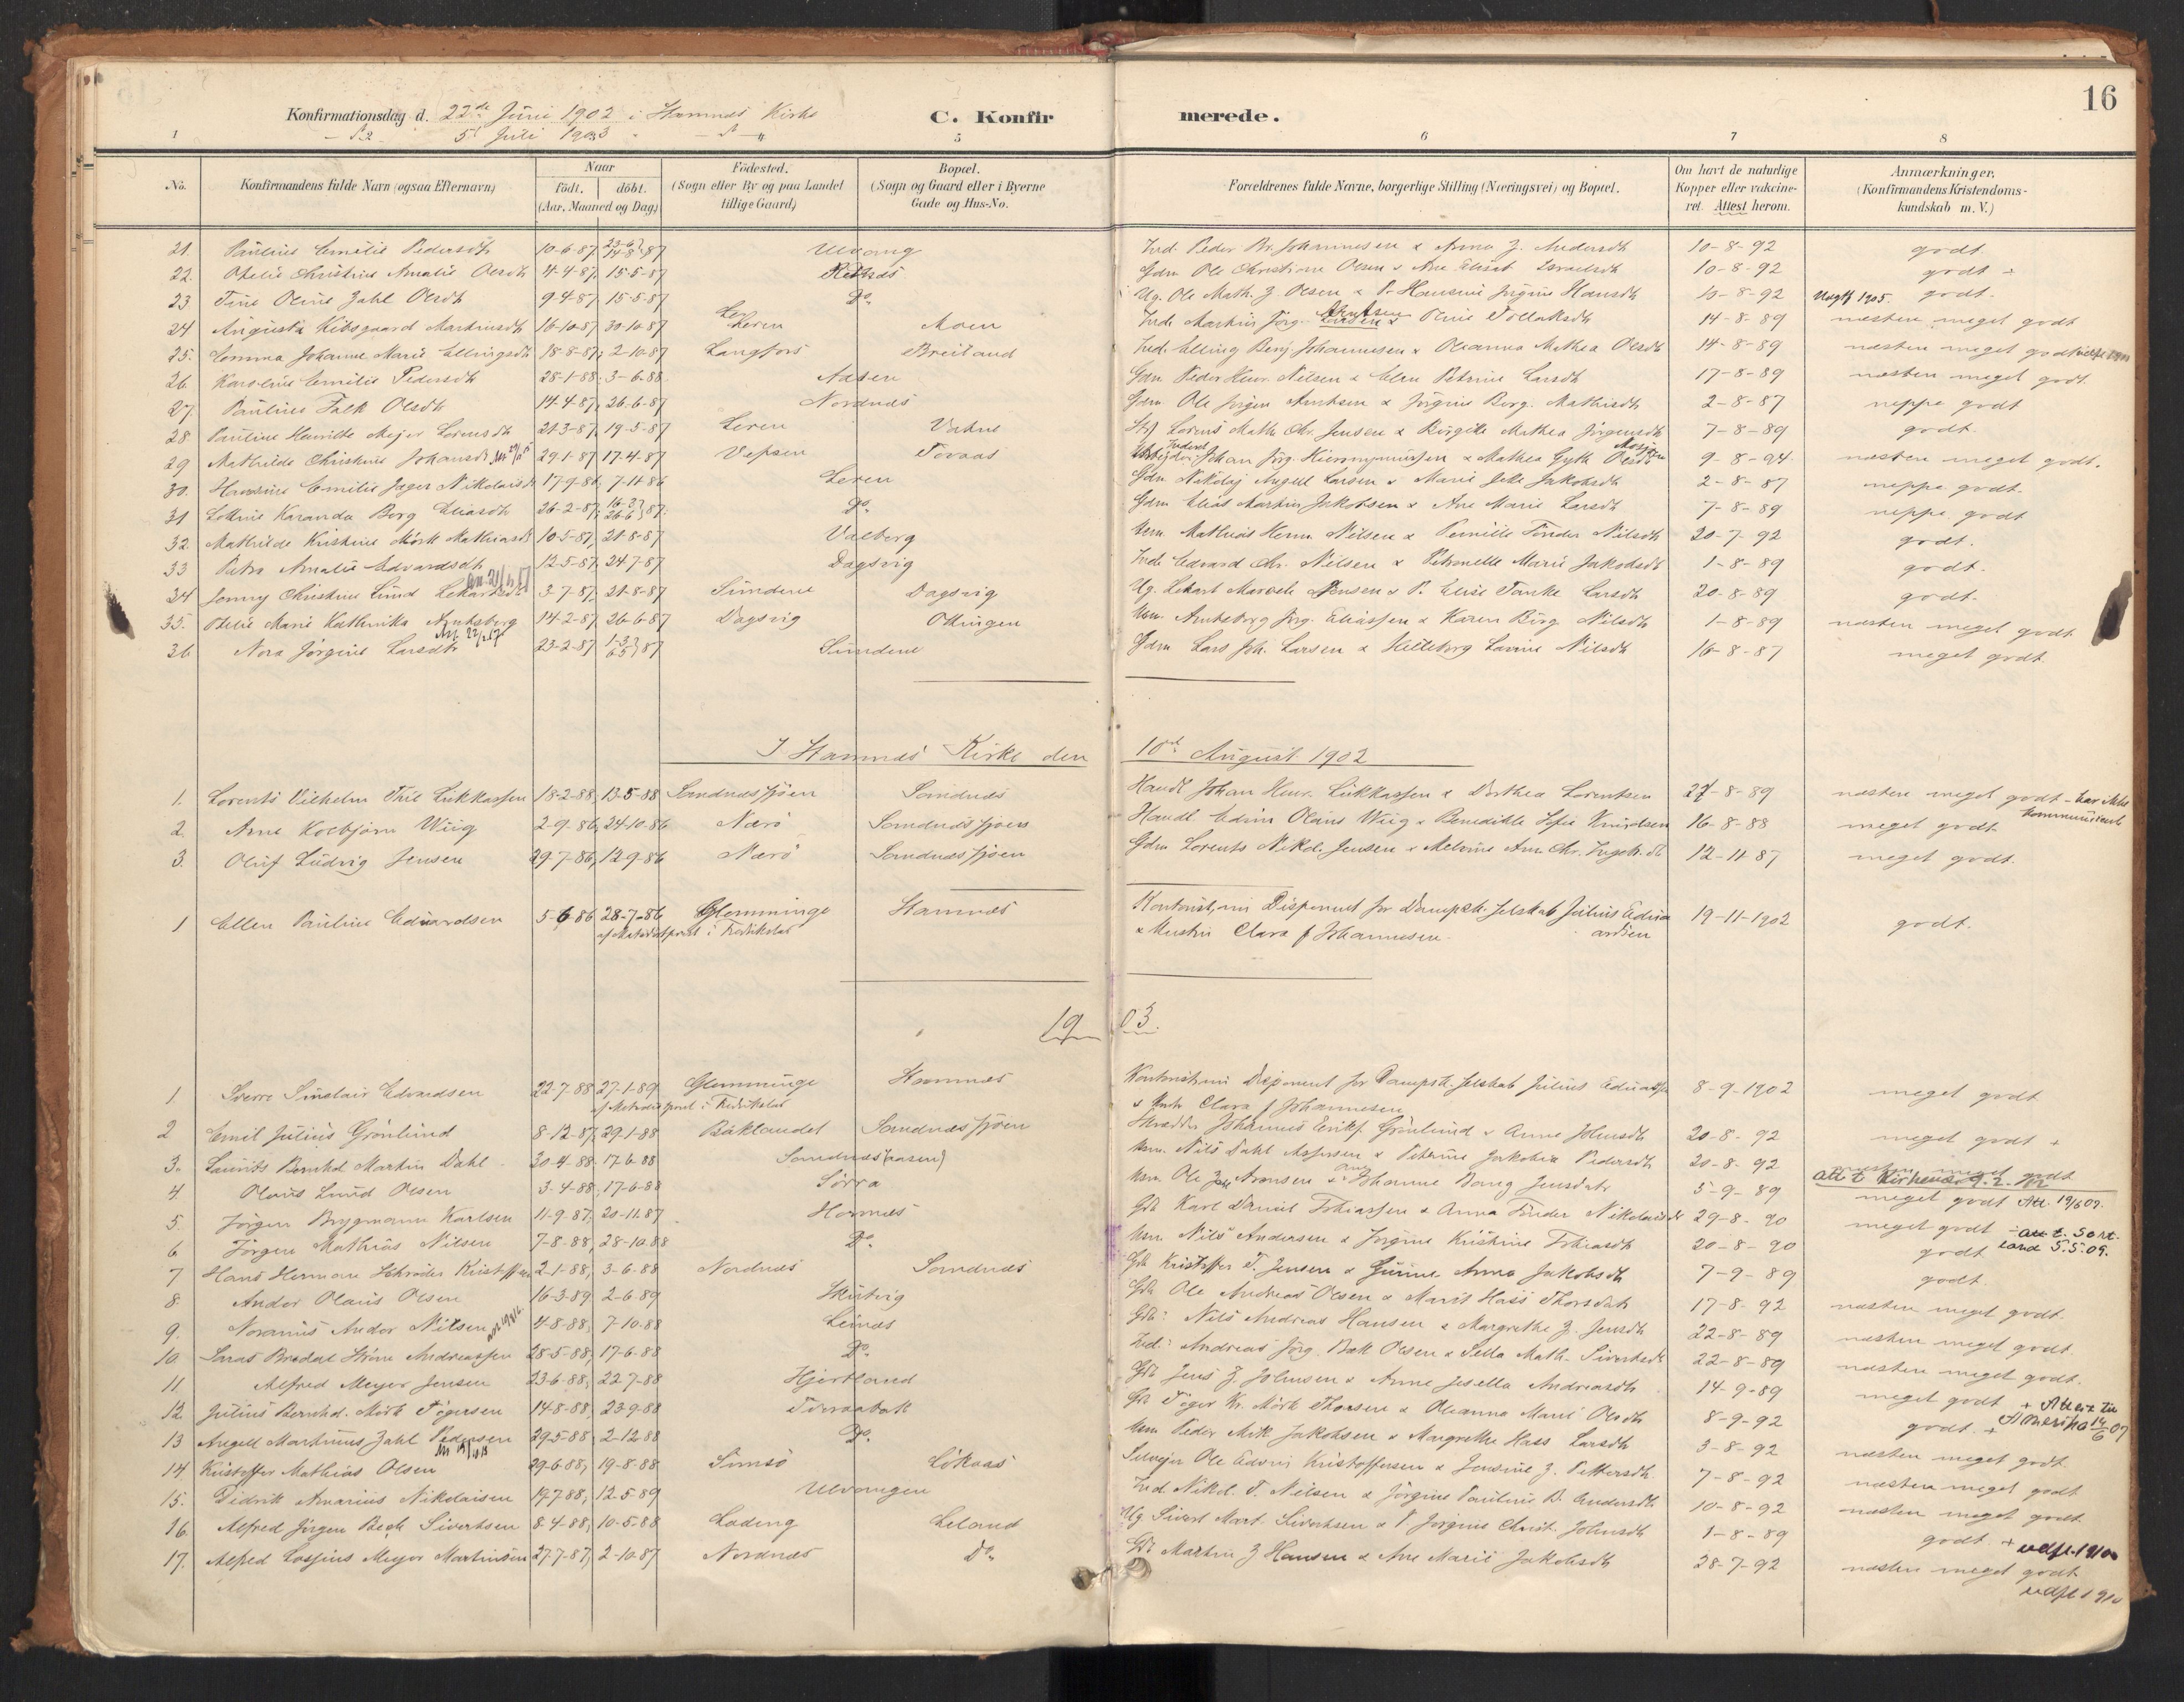 16
Konfirmationsdag d. 22de Juni 1902 i Hamnes Kirke C. Konfirmerede.
5t Juli 1903
1 5 6 7 8
No. Konfirmandens fulde Navn (ogsaa Efternavn) Naar födt. döbt. (Aar, Maaned og Dag) Födested. (Sogn eller By og paa Landet tillige Gaard) Bopæl. (Sogn og Gaard eller i Byerne Gade og Hus-No. Forældrenes fulde Navne, borgerlige Stilling (Næringsvei) og Bopæl. Om havt de naturlige Kopper eller vakcineret. Attest herom. Anmærkninger. (Konfirmandens Kristendomskundskab m. V.)
21. Pauline Emilie Pedersdt 10-6-87 Ulvang Peder Br. Johannesen & Anna J. Andersdt 10-8-92 godt.
22. Otelie Christine Amalie Olsdt 4-4-87 15-5-87 Gdm Ole Christian Olsen & Ane Elisab. Israelsdt 10-8-92 godt +
23. Tine Oline Zahl Olsdt 9-4-87 15-5-87 Do. Ug. Ole Math. Z Olsen & P. Hansine Jörgine Hansdt 10-8-92 godt.
24 Augusta Kibsgaard Martinsdt 16-10-87 30-10-87 Leren Moen Inds Martin Jörg. Arntsen & Oline Tollaksdt 14-8-89 næsten meget godt
25. Emma Johanne Marie Ellingsdt 18-8-87 2-10-87 Langfors Breiland Ind. Elling Benj Johannesen & Oleanna Mathea Olsdt 14-8-89 næsten meget godt
26. Karoline Emilie Pedersdt 28-1-88 3-6-88 Aasen Gdm Peder Henr. Nilsen & Elen Petrine Larsdt 17-8-89 næsten meget godt.
27. Pauline Falk Olsdt 14-4-87 26-6-87 Nordnes Gdm. Ole Jörgen Arntsen & Jörgine Berg. Mathisdt 2-8-87 neppe godt
28 Pauline Henrikke Mejer Lorensdt 21-3-87 19-5-87 Leren Lorens Math Chr. Jensen & Birgitte Mathea Jörgensdt 7-8-89 godt.
29 Mathilde Christine Johansdt 29-1-87 17-4-87 Vefsen Toraas Arbejder Johan Jörg. Hieronymussen & Mathea Gyth Olsdt 9-8-94 næsten meget godt.
30. Hansine Emilie Jæger Nikolaisdt 17-9-86 7-11-86 Leren Gdm Nikolaj Angell Larsen & Marie Jakobsdt 2-8-87 neppe godt.
31 Karanda Berg Eliasdt 26-2-87 Do. Gdm Elias Martin Jakobsen & Ane Marie Larsdt 7-8-89 neppe godt
32 Mathilde Kristine Mörk Mathiasdt 10-5-87 21-8-87 Valberg Usm. Mathias Herm. Nilsen & Pernille Tönder Nilsdt 20-7-92 godt.
33 Petra Amalie Edvardsdt 12-5-87 24-7-87 Dagsvig Inds Edvard Chr. Nilsen & Petronelle Marie Jakobsdt 1-8-89 godt.
34 Jenny Christine Lund 3-7-87 21-8-87 Sundene Dagsvig Ug. Jensen & P. Elise Larsdt 20-8-89 godt.
35. Otelie Marie Kathinka Arntsberg 14-2-87 26-6-87 Dagsvig Ottingen Usm. Arntsberg Jörg. Eliassen & Karen Berg Nilsdt 1-8-89 næsten meget godt
36 Nora Jörgine Larsdtr 23-2-87 Sundene Gdm Lars Joh. Larsen & Lavine Nilsdt 16-8-87 meget godt.
I Hamnes Kirke den 10de August 1902
1. Lorents Vilhelm Lukkassen 18-2-88 13-5-88 Sandnessjöen Sandnes Handl Johan Henr. Lukkassen & Dorthea Lorentsen 27-8-89 næsten meget godt - har ikke kommuniceret
2. Arne Korbjörn Wiig 2-9-86 24-10-86 Nærö Sandnessjöen Handl. Edvin Olaus Wiig & Benedikte Sofie Knudsen 16-8-88 meget godt
3. Oluf Ludvig Jensen 29-7-86 12-9-86 Nærö Sandnessjöen Gdm Lorents Nikol. Jensen & Meline Ane Chr. 12-11-87 meget godt.
1 Ellen Pauline Eduardsen 5-6-86 28-7-86 Glemminge Hamnes Kontorist, nu Disponent for Dampsk. selskab Julius Eduardsen 19-11-1902 godt.
af Metodistpræst i Fredrikstad & Hustru Clara f Johannesen.
1903.
1 Sverre Sinclair Edvardsen 22-7-88 27-1-89 Glemminge Hamnes Kontorist nu Disponent for Dampsk. selskab Julius Eduardsen 8-9-1902 meget godt
af Metodistpræst i Fredrikstad & Hustr Clara f Johannesen
2 Emil Julius Grönlund 8-12-87 29-1-88 Baklandet Sandnessjöen Skrædder Johannes Grönlund & Anne Johnsdt 20-8-92 meget godt +
3. Laurits Bernhd Martin Dahl 30-4-88 17-6-88 Sandnes (aasen) Usm. Nils Dahl & Petrine Jakobia Pedersdt 20-8-92 næsten meget godt
4 Olaus Lund Olsen 3-4-88 17-6-88 Sörra Usm Ole Zahl Aronsen & Johanne Bang Jensdatr 5-9-89 meget godt Att. 19/6 09.
5. Jörgen Brygmann Karlsen 11-9-87 20-11-87 Hamnes Gdb Karl Daniel Tobiassen & Anna Tönder Nikolaisdt 29-8-90 meget godt - att t. Sortland 5.5.09.
6 Jörgen Mathias Nilsen 7-8-88 28-10-88 Do. Usm. Nils Andersen & Jörgine Kristine Tobiasdt 20-8-90 godt
7 Hans Herman Schröder Kristoffersen 2-1-88 3-6-88 Nordnes Sandnes Gdb Kristoffer T. Jensen & Anna Jakobsdt 7-9-89 godt.
8. Andor Olaus Olsen 16-3-89 2-6-89 Gdb Ole Andreas Olsen & Marit Hass Thorsdatr 17-8-92 næsten meget godt.
9. Noranus Andor Nilsen 4-8-88 7-10-88 Leines Gdb: Nils Andreas Hansen & Margrethe Z. Jensdt 22-8-89 næsten meget godt.
10. Bredal Andreassen 28-5-88 17-6-88 Do. Ind: Andreas Jörg. Bæk Olsen & Math. Sivertsdt 22-8-89 næsten meget godt.
11. Alfred Meyer Jensen 23-6-88 22-7-88 Hjertland Gdb Jens Z. Johnsen & Anne Andreasdt 14-9-89 meget godt + Attest til Amerika 14/6 07
12. Julius Bernhd. Mörk Tögersen 14-8-88 23-9-88 Gdb Töger Kr. Mörk Thorsen & Oleanna Marie Olsdt 8-9-92 godt. +
13 Angell Martinus Zahl Pedersen 29-5-88 2-12-88 Do. Usm Peder Mik Jakobsen & Margrethe Hass Larsdt 3-8-92 næsten meget godt.
14 Kristoffer Mathias Olsen 29-6-88 19-8-88 Lökaas Selvejer Ole Edvin Kristoffersen & Jensine Z. Pettersdt. 7-8-92 næsten meget godt
15. Didrik Amarius Nikolaisen 17-7-88 12-5-89 Ulvangen Ind. Nikol. T. Nilsen & Jörgine Pauline B. Andersdt 10-8-92 næsten meget godt.
16. Alfred Jörgen Bech Sivertsen 8-4-88 10-5-88 Lading Leland Ug Sivert Mart. Sivertsen & P. Jörgine Christ. Johnsdt 1-8-89 godt + udfl. 1910
17. Alfred Lossius Meyer Martinsen 27-7-87 2-10-87 Nordnes Do. Gdb Martin Z Hansen & Ane Marie Jakobsdt 28-7-92 næsten meget godt
udfl 1910